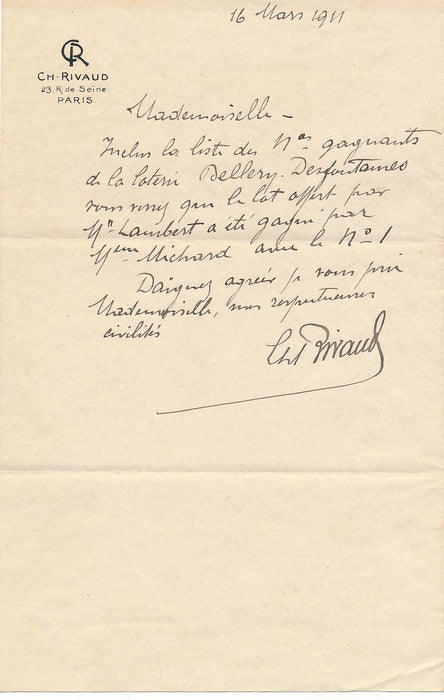 16 Mars 1911
CR
CH. RIVAUD
23. R. de Seine
PARIS
Mademoiselle –
Inclus la liste des Nos gagnants
de la loterie Dellery. Desfontaines
vous verrez que le lot offert par
Mr Lambert a été gagné par
Mme Michard avec le No 1
Daignez agréer je vous prie
Mademoiselle, mes respectueuses
civilités
Ch Rivaud